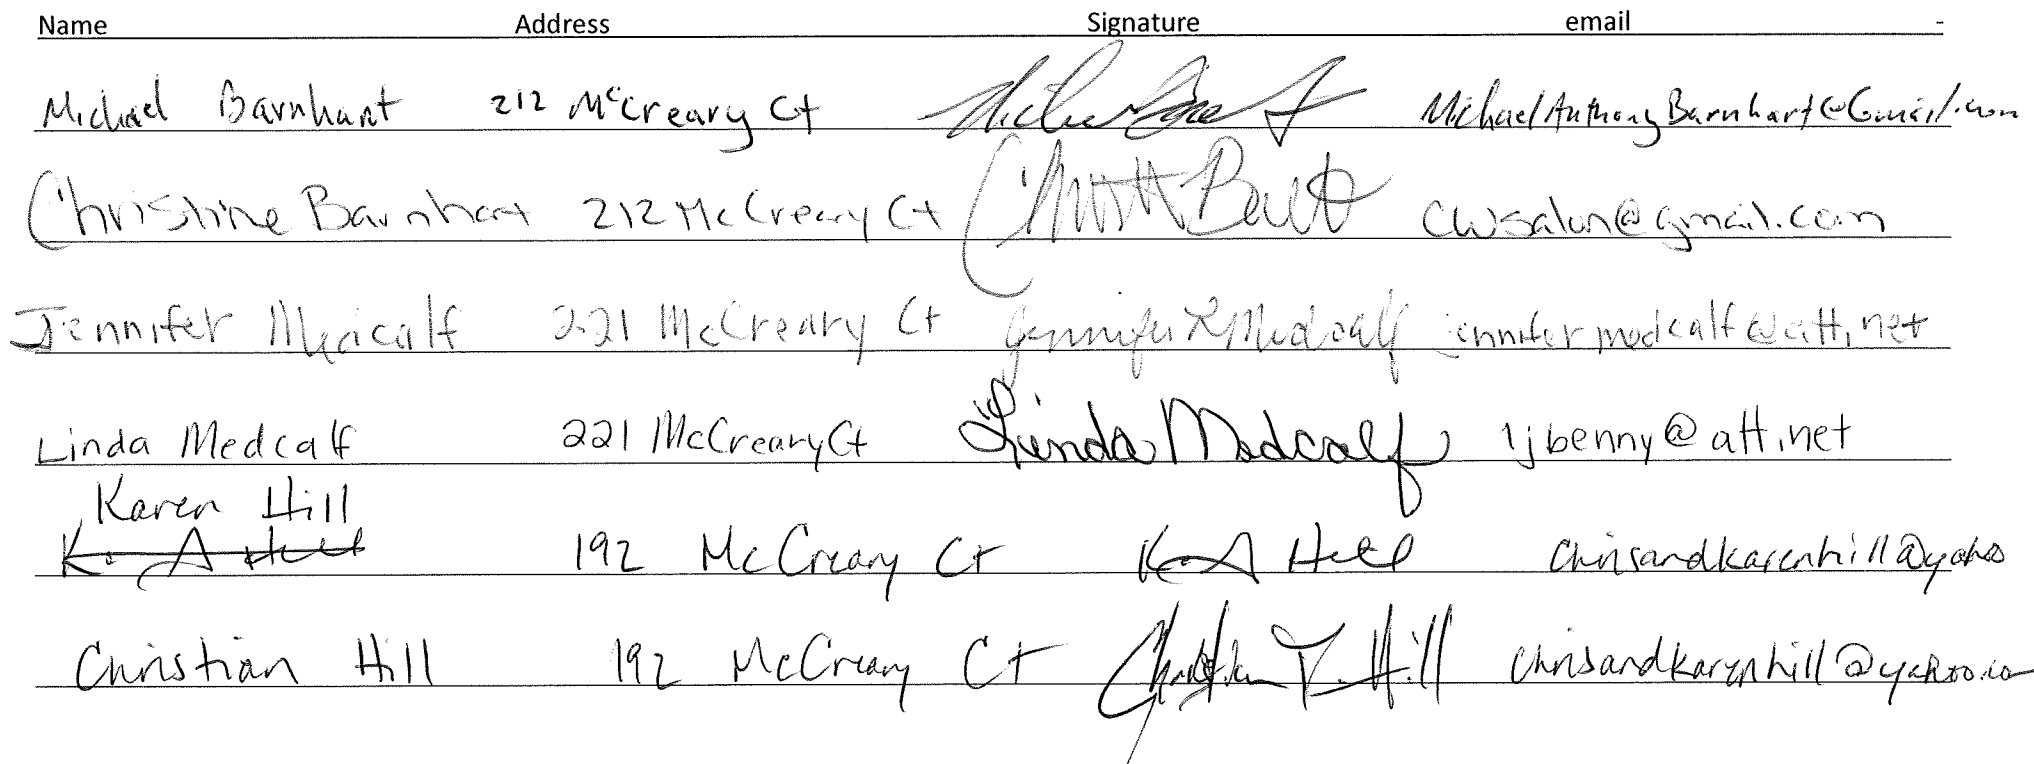 Name Address Signature email
Michael Barnhart 212 McCreary Ct MichaelAnthonyBarnhart@Gmail.com
Christine Barnhart 212 McCreary Ct cwsalon@gmail.com
Jennifer Medcalf 221 McCreary Ct Jennifer K Medcalf jennifermedcalf@att.net
Linda Medcalf 221 McCreary Ct Linda Medcalf ljbenny@att.net
Karen Hill
K. A Hill 192 McCreary Ct K A Hill chrisandkarenhill@yahoo
Christian Hill 192 McCreary Ct Christian T. Hill chrisandkarenhill@yahoo.co